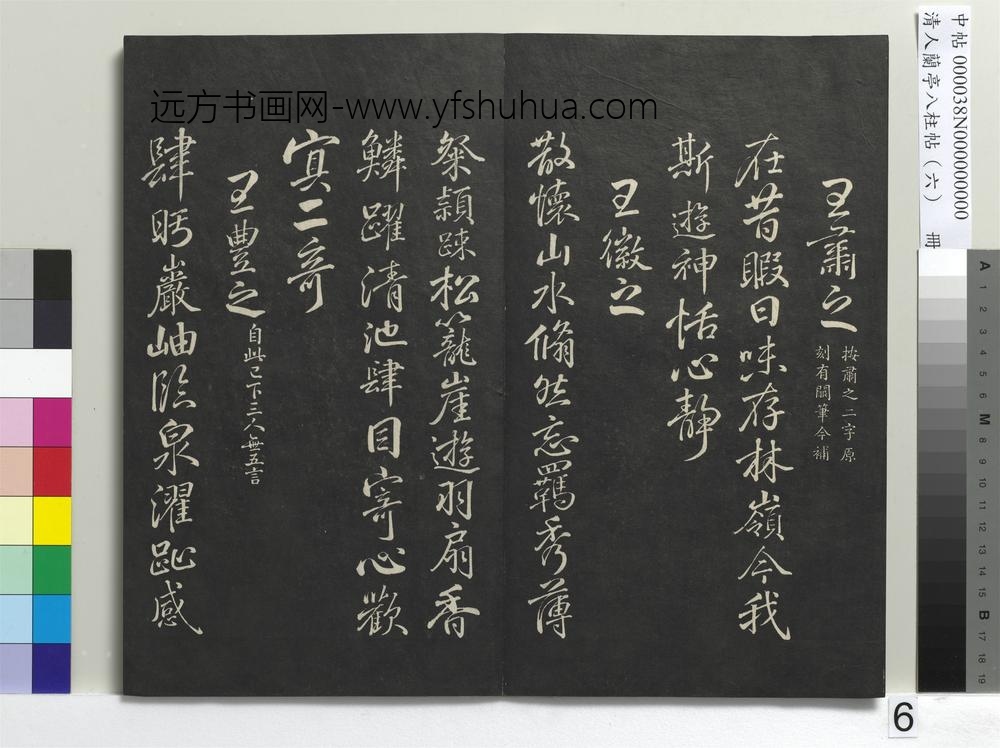 远方书画网-www.yfshuhua.com
中帖 000038N000000000
清人蘭亭八柱帖(六) 冊
王肅之
按肅之二字原
刻有闕筆今補
在昔暇日味存林嶺今我
斯遊神恬心静
王徽之
散懷山水翛然忘羈秀薄
粲頴疎松籠崖遊羽扇香
鱗躍清池肆目寄心歡
寘二奇
王豊之
自此已下三人無五言
肆眄巖岫臨泉濯趾感
A 1 2 3 4 5 6 M 8 9 10 11 12 13 14 15 B 17 18 19
6